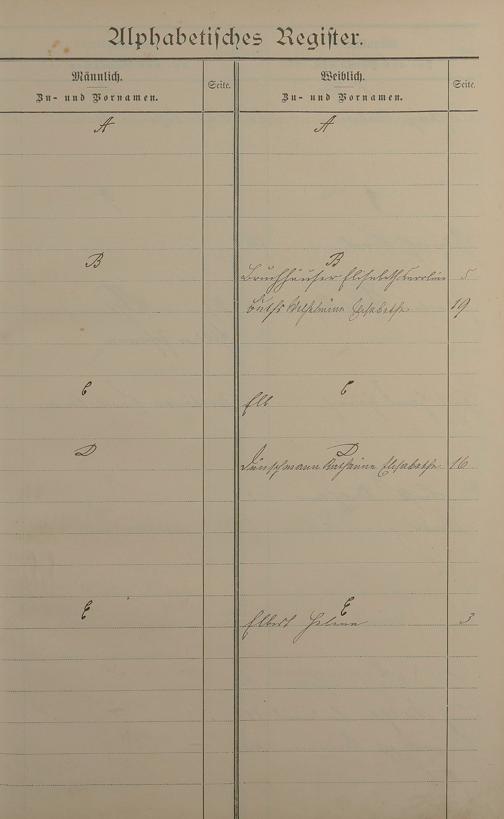 Alphabetisches Register.
Männlich.
Zu- und Vornamen.
Seite.
Weiblich.
Zu- und Vornamen.
Seite.
A
A
B
B
Bruchhäuser Elisabeth 5
Wilhelmine Elisabethe 19
C
C
Elb
D
D
Dünschmann Katharine Elisabethe 16
E
E
Elbert Helene 3